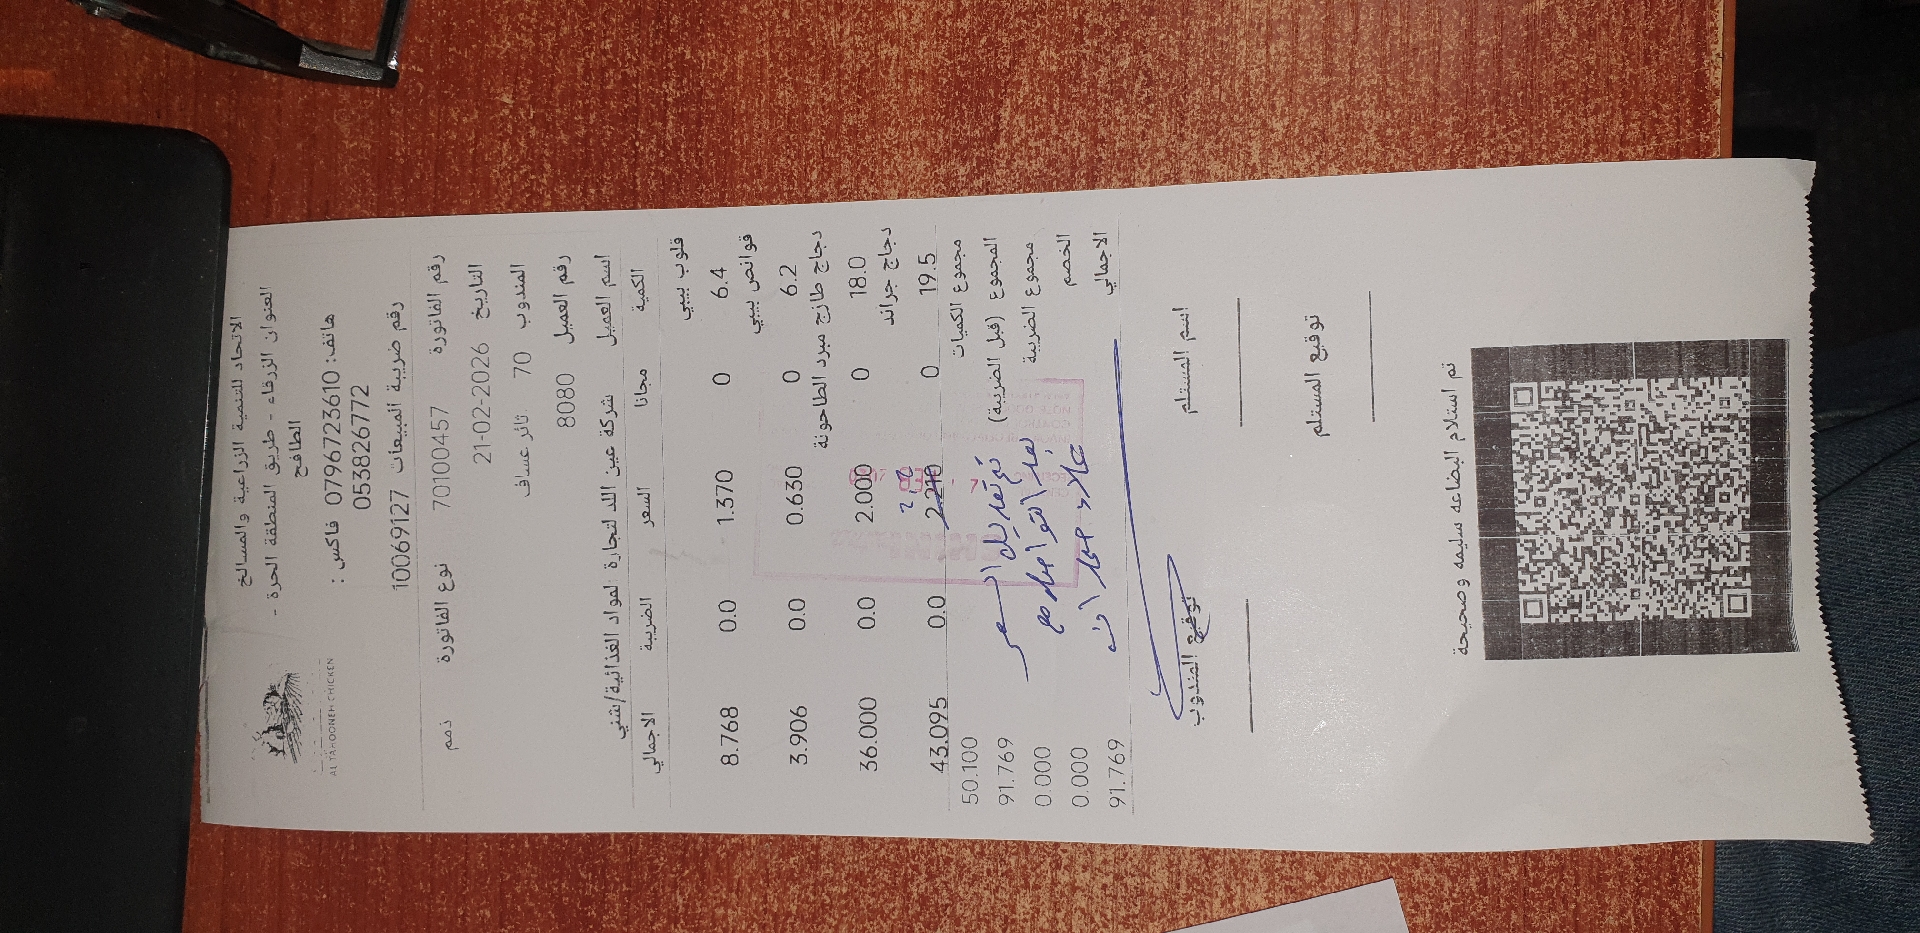 الاتحاد للتنمية الزراعية والمسالخ
العنوان الزرقاء - طريق المنطقة الحرة -
الطافح
هاتف: 0796723610 فاكس :
053826772
رقم ضريبة المبيعات 10069127
AL TAHOONEH CHICKEN
رقم الفاتورة 70100457 نوع الفاتورة ذمم
التاريخ 21-02-2026
المندوب 70 ثائر عساف
رقم العميل 8080
اسم العميل شركة عين اللد لتجارة لمواد الغذائية/شني
الكمية مجانا السعر الضريبة الاجمالي
قلوب بيبي
6.4 0 1.370 0.0 8.768
قوانص بيبي
6.2 0 0.630 0.0 3.906
دجاج طازج مبرد الطاحونة
18.0 0 2.000 0.0 36.000
دجاج جراند
19.5 0 2.210 0.0 43.095
مجموع الكميات 50.100
المجموع (قبل الضريبة) 91.769
مجموع الضريبة 0.000
الخصم 0.000
الاجمالي 91.769
تم تعديل السعر
بعد التواصل مع
اسم المستلم توقيع المندوب
توقيع المستلم
تم استلام البضاعه سليمه وصحيحة